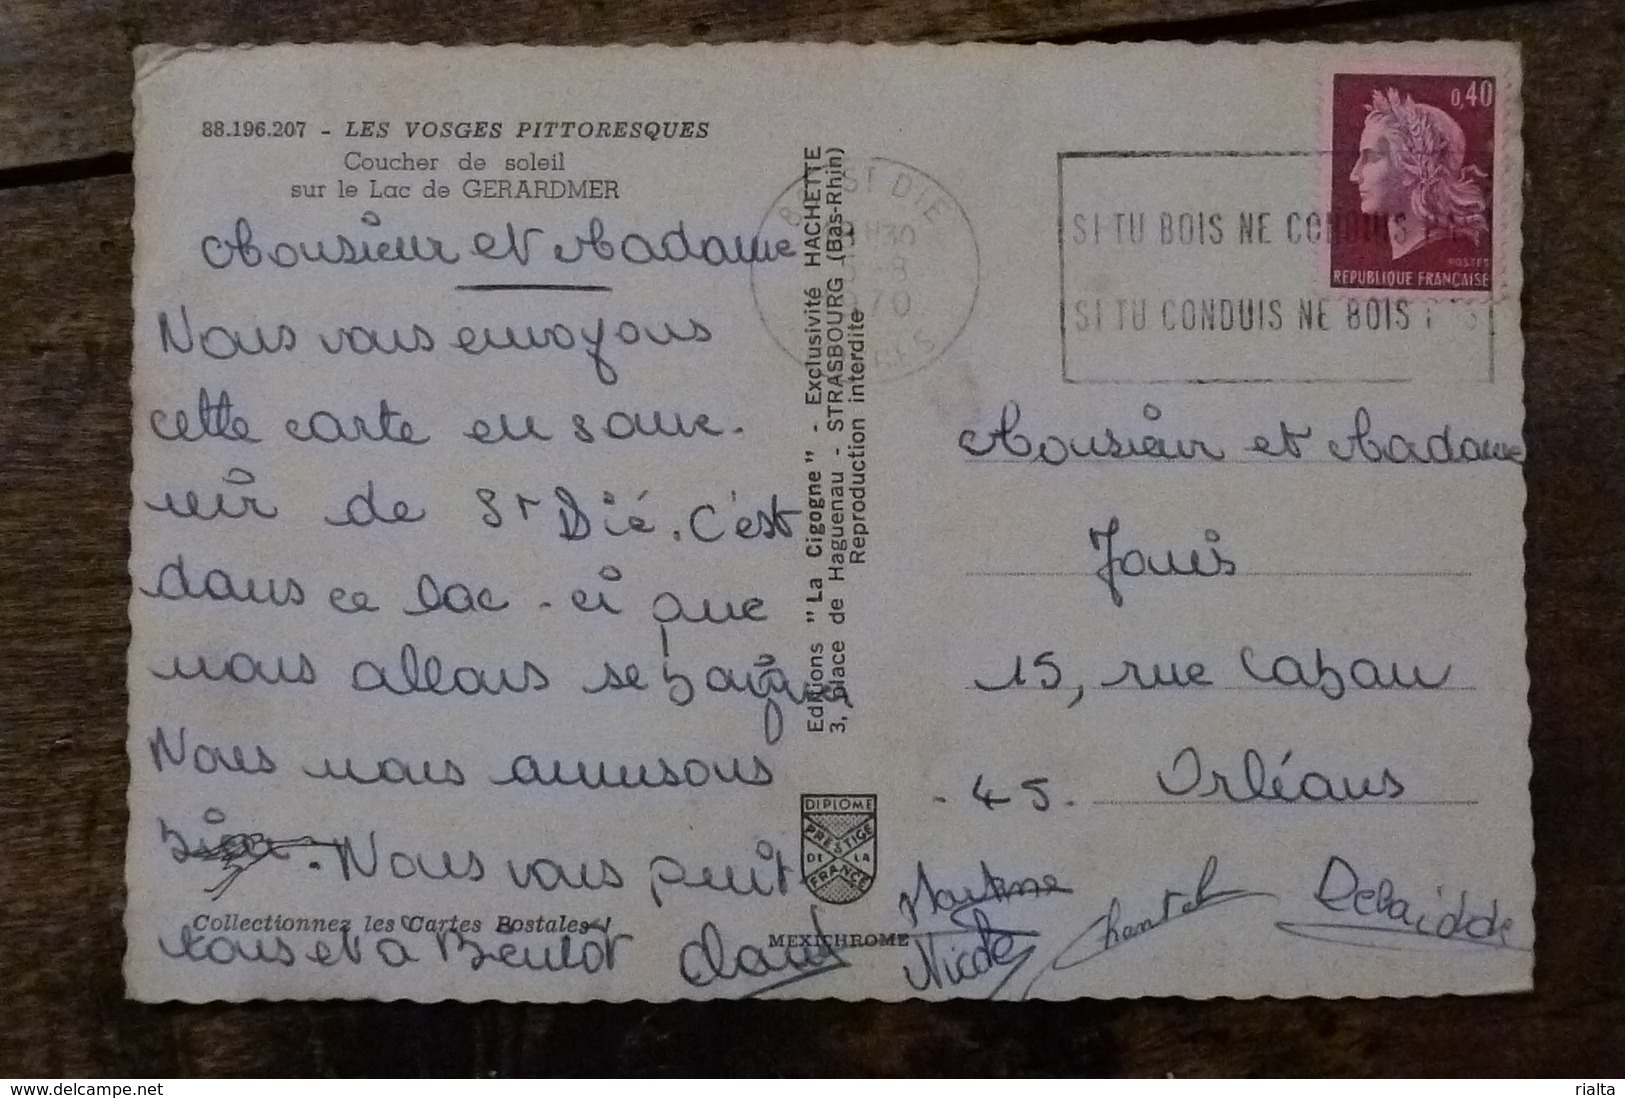 88.196.207 - LES VOSGES PITTORESQUES
Coucher de soleil
sur le Lac de GERARDMER
Monsieur et Madame
Nous vous envoyons
cette carte en souve-
nir de St Dié. C'est
dans ce lac-ci que
nous allons se baigner
Nous nous amusons
bien. Nous vous
tous et a
Collectionnez les Cartes Postales
Editions "La Cigogne" - Exclusivité HACHETTE
3, place de Haguenau - STRASBOURG (Bas-Rhin)
Reproduction interdite
DIPLOME
PRESTIGE
DE LA
FRANCE
MEXICHROME
ST DIE
H30
-8
1970
SI TU BOIS NE CONDUIS PAS
SI TU CONDUIS NE BOIS PAS
0,40
POSTES
REPUBLIQUE FRANÇAISE
Monsieur et Madame
Jouis
15, rue Caban
-45. Orléans
Martine
Nicole
Chantal
delcampe.net
rialta